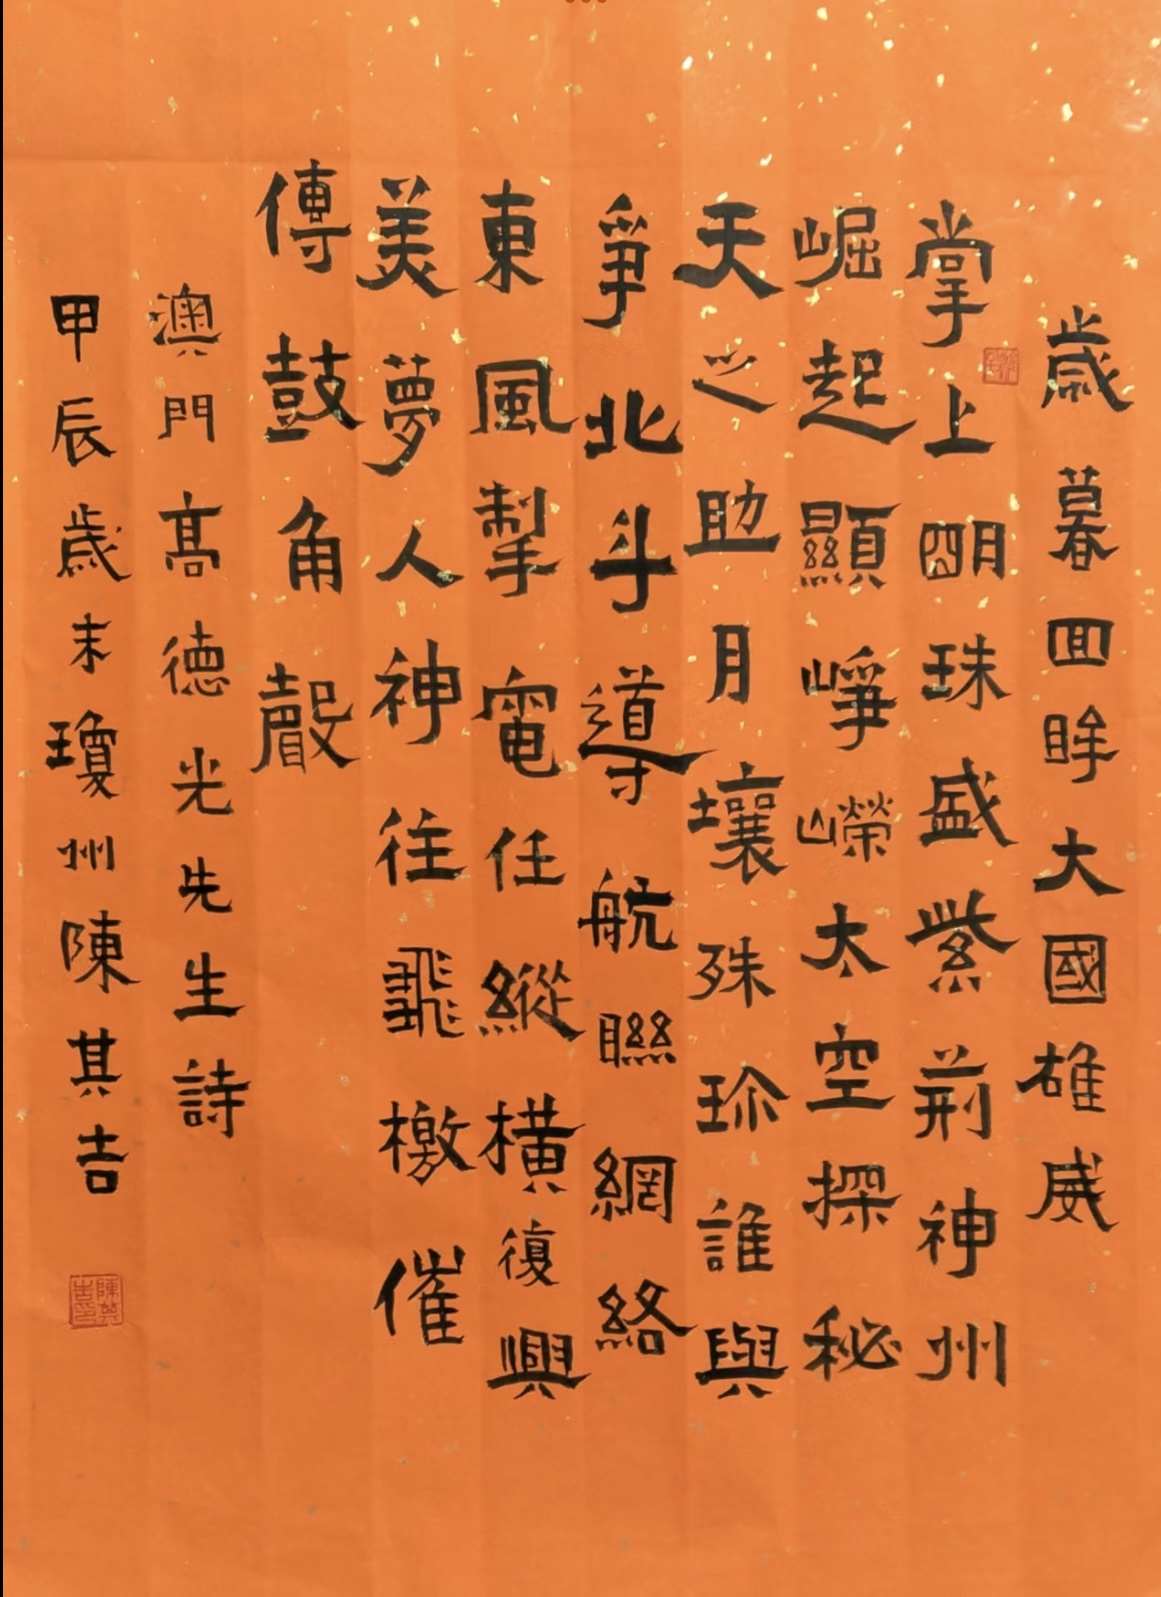 歲暮回眸大國雄威
掌上明珠盛紫荊神州
崛起顯崢嶸太空探秘
天之助月壤殊珍誰與
爭北斗導航聯網絡
東風掣電任縱橫復興
美夢人神往飛檄催
傳鼓角聲
澳門高德光先生詩
甲辰歲末瓊州陳其吉
陳其吉印